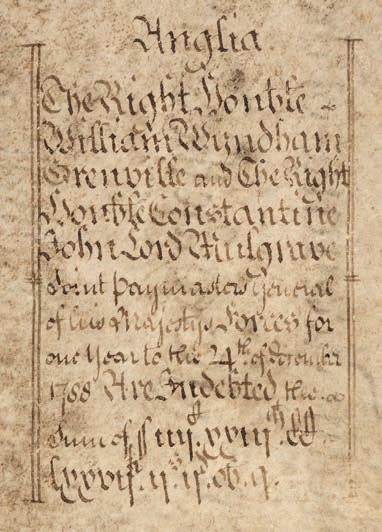 Anglia.
The Right Honble
William Wyndham
Grenville and The Right
Honble Constantine
John Lord Mulgrave
Joint Paymasters General
of his Majestys Forces for
one Year to the 24th. of December
1788 Are Indebted the
Sum of